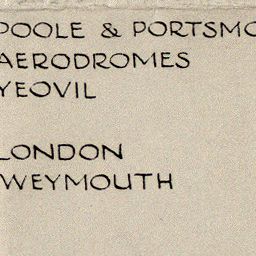 POOLE & PORTSMO
AERODROMES
YEOVIL
LONDON
WEYMOUTH